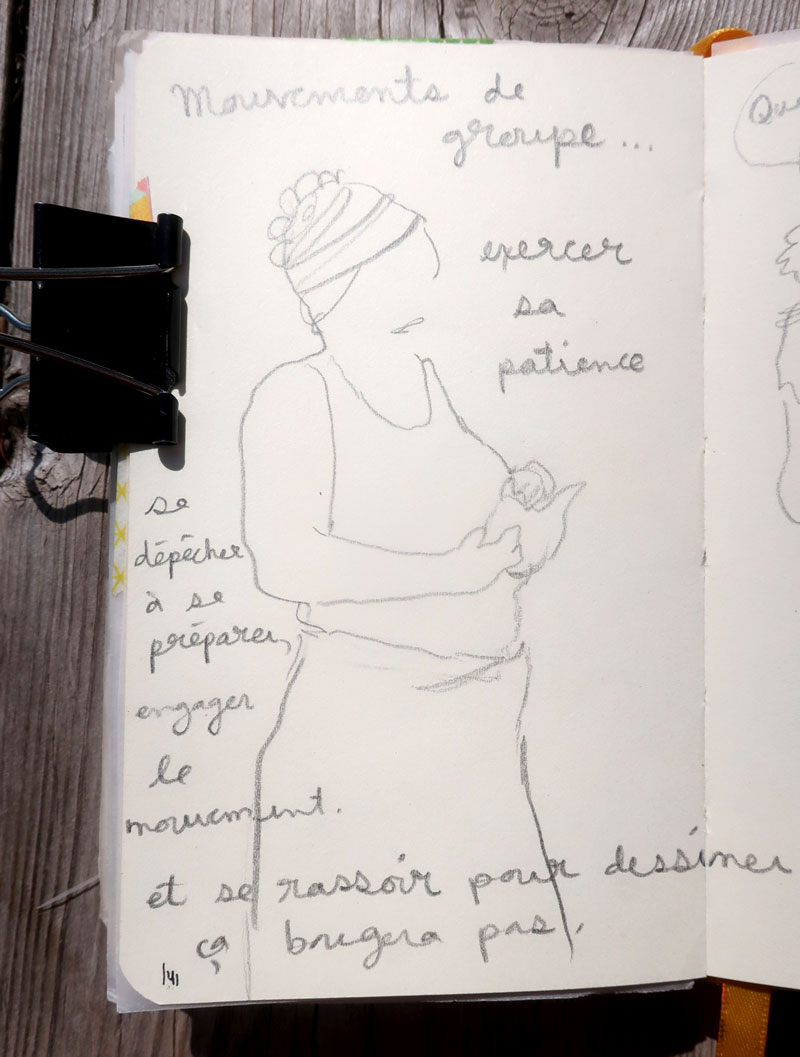 Mouvements de
groupe...
exercer
sa
patience
se
dépêcher
à se
préparer,
engager
le
mouvement.
et se rassoir pour dessiner
ça bougera pas.
141